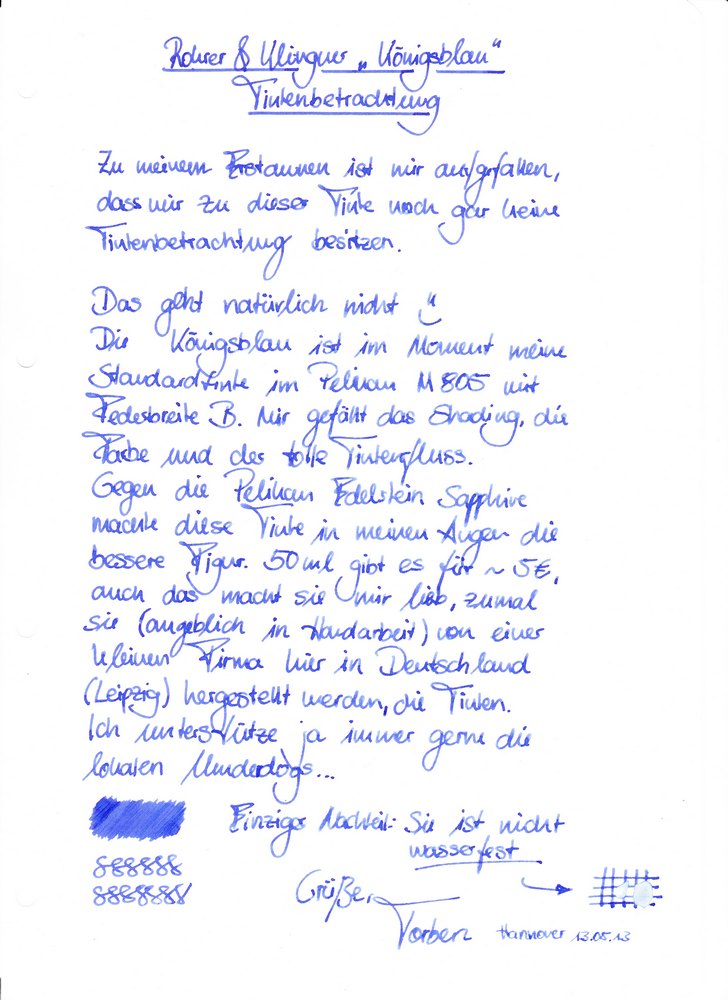 Rohrer & Klingner „Königsblau“
Tintenbetrachtung
Zu meinem Erstaunen ist mir aufgefallen,
dass wir zu dieser Tinte noch gar keine
Tintenbetrachtung besitzen.
Das geht natürlich nicht
Die Königsblau ist im Moment meine
Standardtinte im Pelikan M 805 mit
Federbreite B. Mir gefällt das Shading, die
Farbe und der tolle Tintenfluss.
Gegen die Pelikan Edelstein Sapphire
macht diese Tinte in meinen Augen die
bessere Figur. 50ml gibt es für ~ 5€,
auch das macht sie mir lieb, zumal
sie (angeblich in Handarbeit) von einer
kleinen Firma hier in Deutschland
(Leipzig) hergestellt werden, die Tinten.
Ich unterstütze ja immer gerne die
lokalen Underdogs...
Einziger Nachteil: Sie ist nicht
wasserfest
Grüße,
Torben Hannover 13.05.13